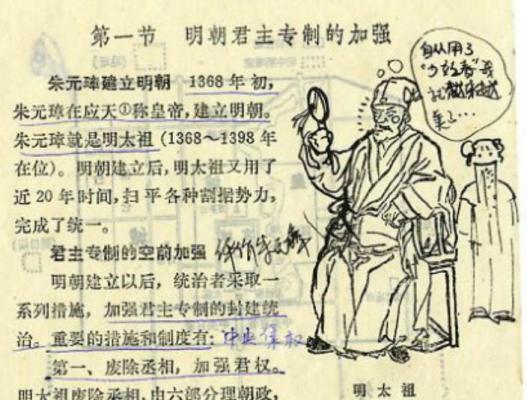 第一节 明朝君主专制的加强
朱元璋建立明朝 1368年初，
朱元璋在应天①称皇帝，建立明朝。
朱元璋就是明太祖（1368～1398年
在位）。明朝建立后，明太祖又用了
近20年时间，扫平各种割据势力，
完成了统一。
君主专制的空前加强
明朝建立以后，统治者采取一
系列措施，加强君主专制的封建统
治。重要的措施和制度有：中央集权
第一、废除丞相，加强君权。
明太祖废除丞相，由六部分理朝政，
自从用了
我
越
美了…
明太祖